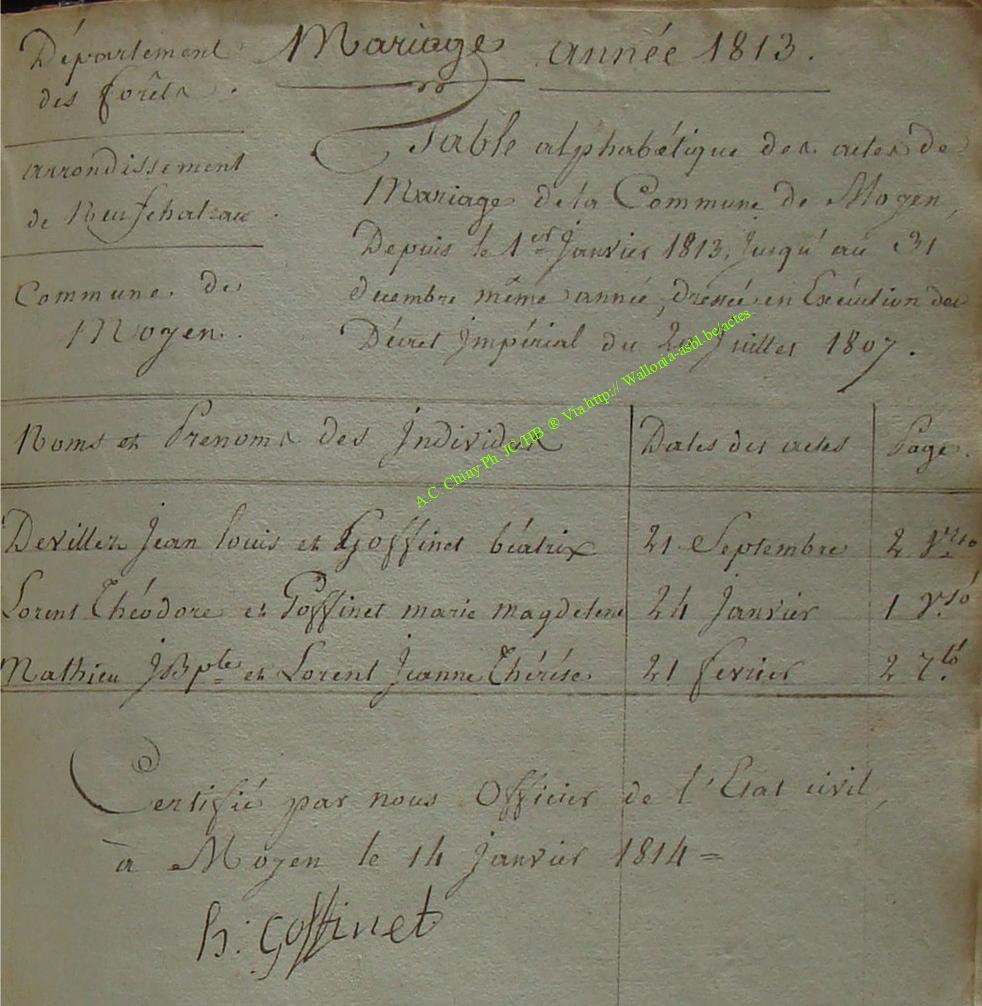 Département
des forêts.
Mariage année 1813.
arrondissement
de Neufchateau.
Commune de
Moyen.
Table alphabétique des actes de
Mariage de la Commune de Moyen,
Depuis le 1er Janvier 1813, Jusqu'au 31
decembre même année, dressée en Exécution du
Décret Impérial du 20 Juillet 1807.
A.C. Chiny Ph. JC/HB ® Via http:// Wallonia-asbl.be/actes
Noms et Prenoms des Individus Dates des actes Page.
Devillez Jean louis et Goffinet béatrix 21 Septembre 2
Lorent Théodore et Goffinet marie magdelene 24 Janvier 1 Vso
Mathieu JBpte et Lorent Jeanne Thérése 21 fevrier 2
Certifié par nous Officier de l'Etat civil,
à Moyen le 14 Janvier 1814 =
h: Goffinet